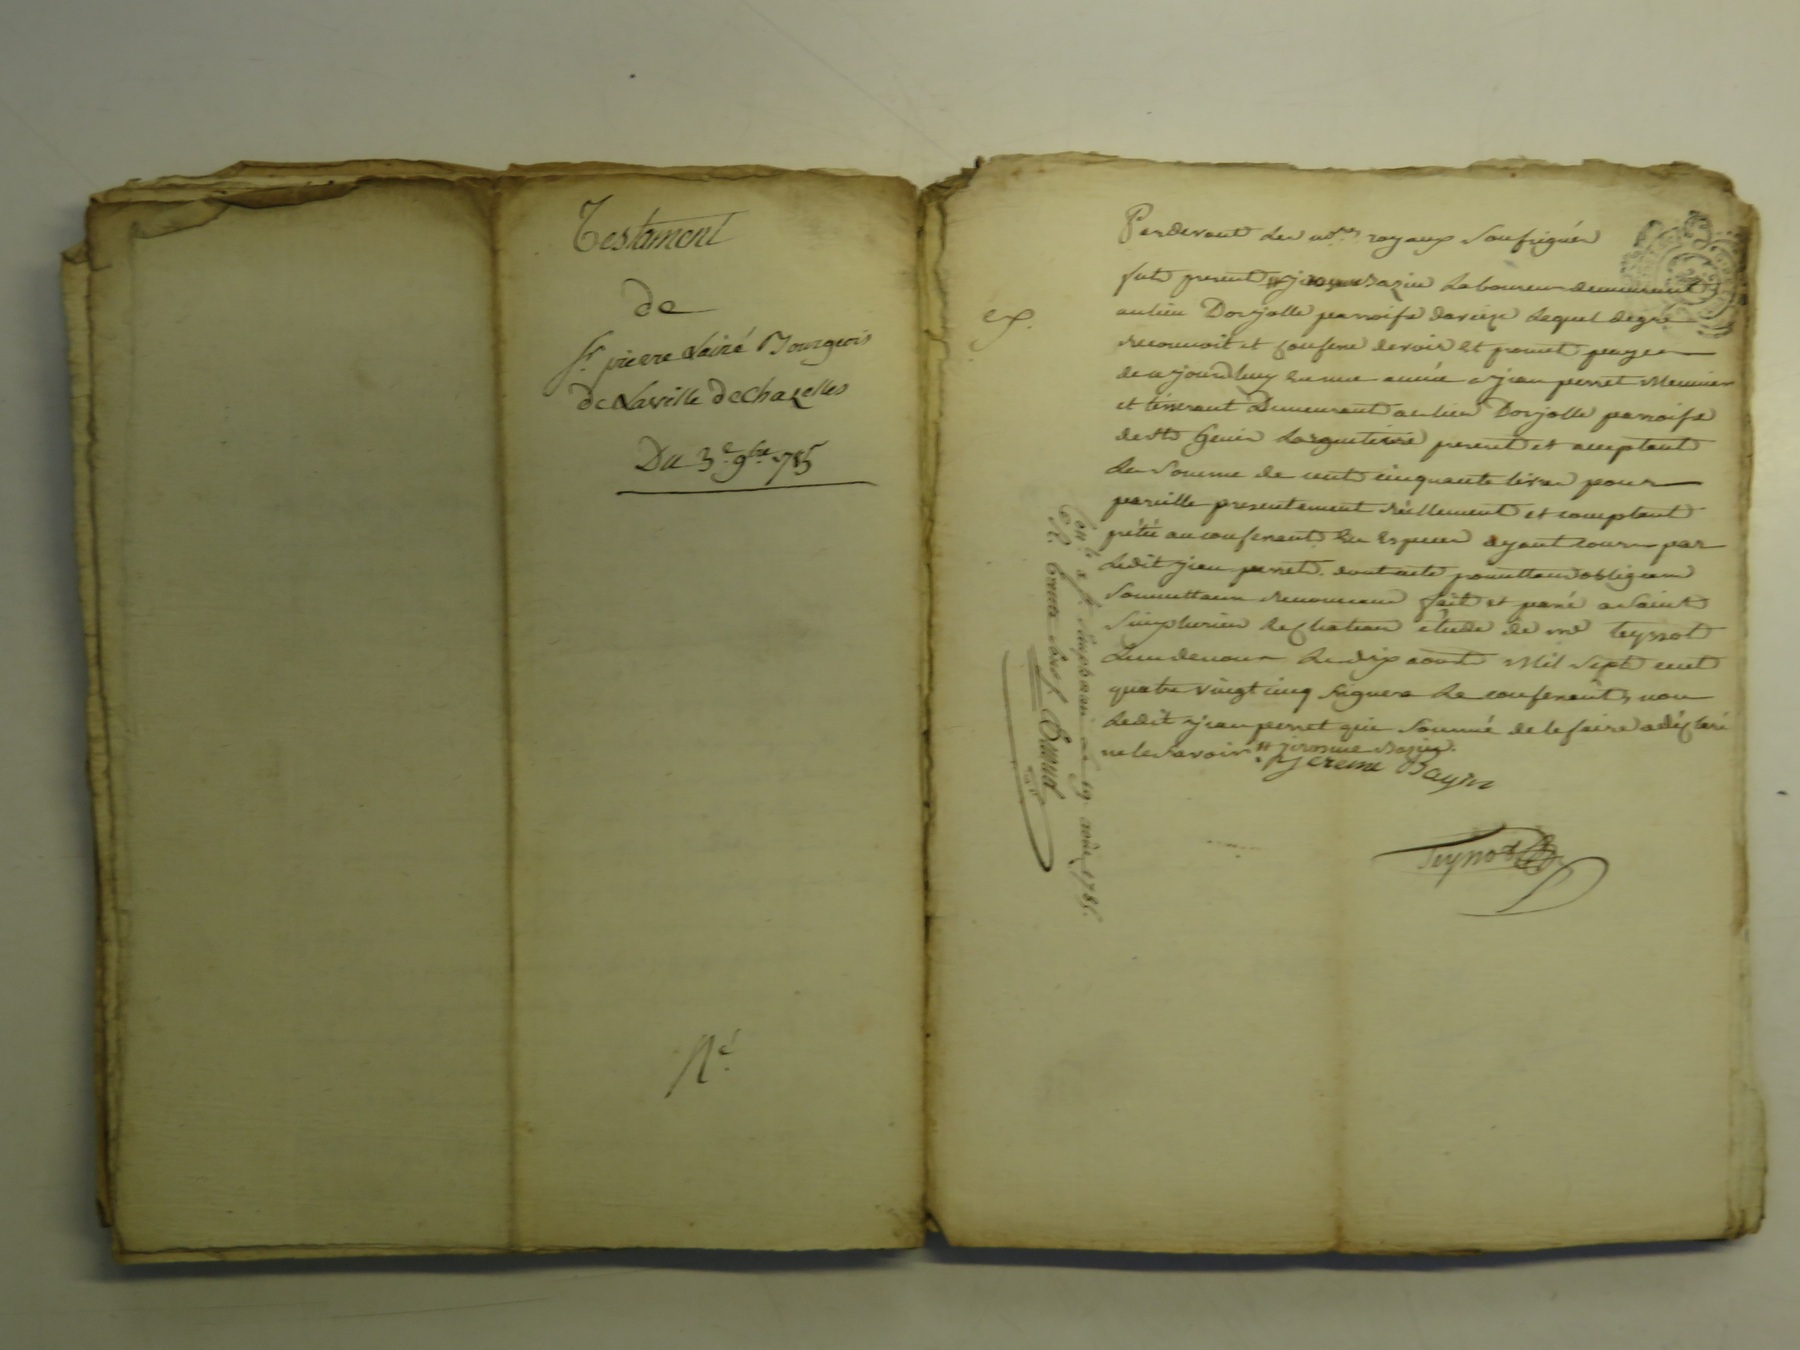 Testament
de
Sr. pierre Lainé Bourgeois
de Laville de Chazelles
Du 3e. 9bre. 1785
Né.
Pardevant les nores royaux soussignés
fut present # Bazin Laboureur demeurant
au lieu Dorjolle parroisse daveize Lequel degré
reconnoit et confesse devoir et promet payer
de ajourdhuy en une année a jean perret Meunier
et tisserant Demeurant au lieu Dorjolle parroisse
de St Genis Largentiere present et acceptant
La somme de cent cinquante livres pour
pareille presentement réellement et comptant
prétée au confessant en especes ayant cours par
Ledit jean perret. dont acte promettans obligeans
soumettans renonceans fait et passé a Saint
Simphorien le Chateau étude de me Teyssot
L'un de nous Le dix aoust mil sept cent
quatre vingt cinq signera Le confessant, non
Ledit jean perret qui sommé de le faire a déclaré
ne le savoir # jerosme Bazin.
jereme Bazin
Teyssot
ex.
Con.lé a St. Simphorien le 19 août 1785.
R. trente sous